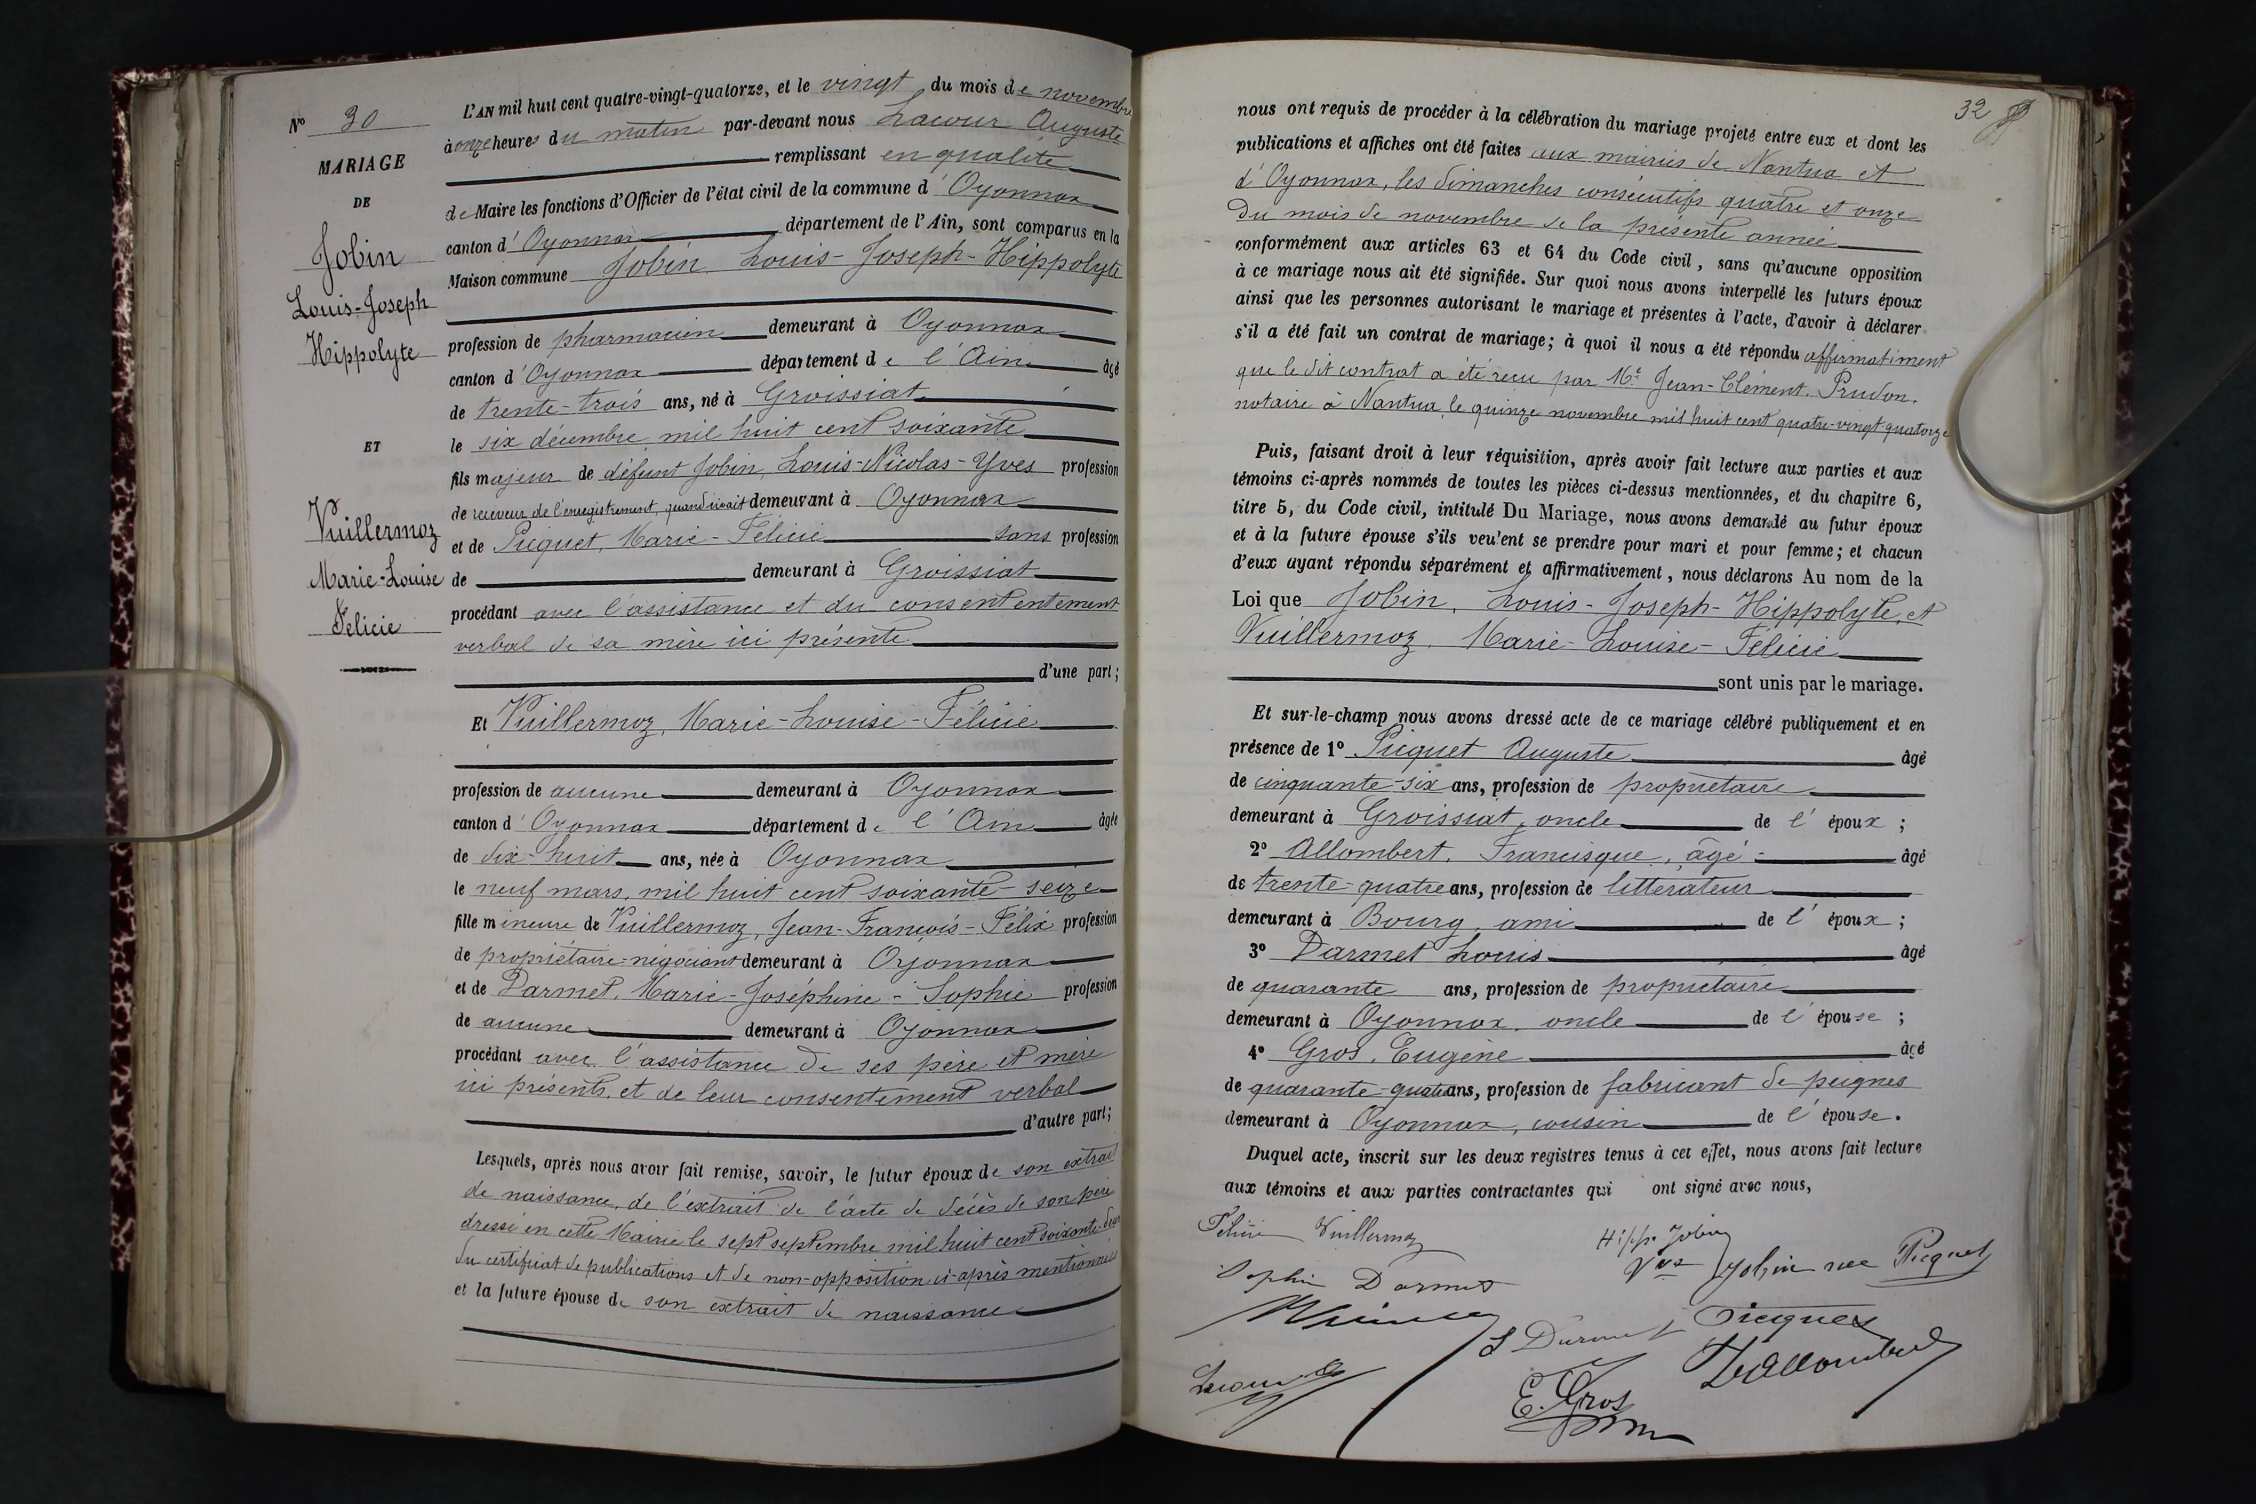 No 30
MARIAGE
DE
Jobin
Louis-Joseph
Hippolyte
ET
Vuillermoz
Marie-Louise
Félicie
L'AN mil huit cent quatre-vingt-quatorze, et le vingt du mois de novembre
à onze heures du matin par-devant nous Lacour Auguste
remplissant en qualité
de Maire les fonctions d'Officier de l'état civil de la commune d'Oyonnax
canton d'Oyonnax département de l'Ain, sont comparus en la
Maison commune Jobin Louis-Joseph-Hippolyte
profession de pharmacien demeurant à Oyonnax
canton d'Oyonnax département de l'Ain âgé
de trente-trois ans, né à Groissiat
le six décembre mil huit cent soixante
fils majeur de défunt Jobin, Louis-Nicolas-Yves profession
de receveur de l'enregistrement, quand vivait demeurant à Oyonnax
et de Picquet, Marie-Félicie sans profession
de demeurant à Groissiat
procédant avec l'assistance et du consententement
verbal de sa mère ici présente
d'une part;
Et Vuillermoz, Marie-Louise-Félicie
profession de aucune demeurant à Oyonnax
canton d'Oyonnax département de l'Ain âgée
de dix-huit ans, née à Oyonnax
le neuf mars, mil huit cent soixante-seize
fille mineure de Vuillermoz, Jean-François-Félix profession
de propriétaire-négociant demeurant à Oyonnax
et de Darmet, Marie-Joséphine-Sophie profession
de aucune demeurant à Oyonnax
procédant avec l'assistance de ses père et mère
ici présents, et de leur consentement verbal
d'autre part;
Lesquels, après nous avoir fait remise, savoir, le futur époux de son extrait
de naissance, de l'extrait de l'acte de décès de son père
dressé en cette Mairie le sept septembre mil huit cent soixante-deux
du certificat de publications et de non-opposition ci-après mentionnés
et la future épouse de son extrait de naissance
32
nous ont requis de procéder à la célébration du mariage projeté entre eux et dont les
publications et affiches ont été faites aux mairies de Nantua et
d'Oyonnax, les dimanches consécutifs quatre et onze
du mois de novembre de la présente année
conformément aux articles 63 et 64 du Code civil, sans qu'aucune opposition
à ce mariage nous ait été signifiée. Sur quoi nous avons interpellé les futurs époux
ainsi que les personnes autorisant le mariage et présentes à l'acte, d'avoir à déclarer
s'il a été fait un contrat de mariage; à quoi il nous a été répondu affirmatiment
que le dit contrat a été reçu par Me Jean-Clément Prudon,
notaire à Nantua, le quinze novembre mil huit cent quatre-vingt quatorze
Puis, faisant droit à leur réquisition, après avoir fait lecture aux parties et aux
témoins ci-après nommés de toutes les pièces ci-dessus mentionnées, et du chapitre 6,
titre 5, du Code civil, intitulé Du Mariage, nous avons demandé au futur époux
et à la future épouse s'ils veulent se prendre pour mari et pour femme; et chacun
d'eux ayant répondu séparément et affirmativement, nous déclarons Au nom de la
Loi que Jobin, Louis-Joseph-Hippolyte, et
Vuillermoz, Marie-Louise-Félicie
sont unis par le mariage.
Et sur-le-champ nous avons dressé acte de ce mariage célébré publiquement et en
présence de 1° Picquet Auguste âgé
de cinquante-six ans, profession de propriétaire
demeurant à Groissiat, oncle de l'époux;
2° Allombert, Francisque, âgé âgé
de trente-quatre ans, profession de littérateur
demeurant à Bourg, ami de l'époux;
3° Darmet Louis âgé
de quarante ans, profession de propriétaire
demeurant à Oyonnax, oncle de l'épouse;
4° Gros, Eugène âgé
de quarante-quatre ans, profession de fabricant de peignes
demeurant à Oyonnax, cousin de l'épouse.
Duquel acte, inscrit sur les deux registres tenus à cet effet, nous avons fait lecture
aux témoins et aux parties contractantes qui ont signé avec nous,
Félicie Vuillermoz Hipp. Jobin
Vve Jobin née Picquet
Sophie Darmet
Picquet
L Darmet
E. Gros